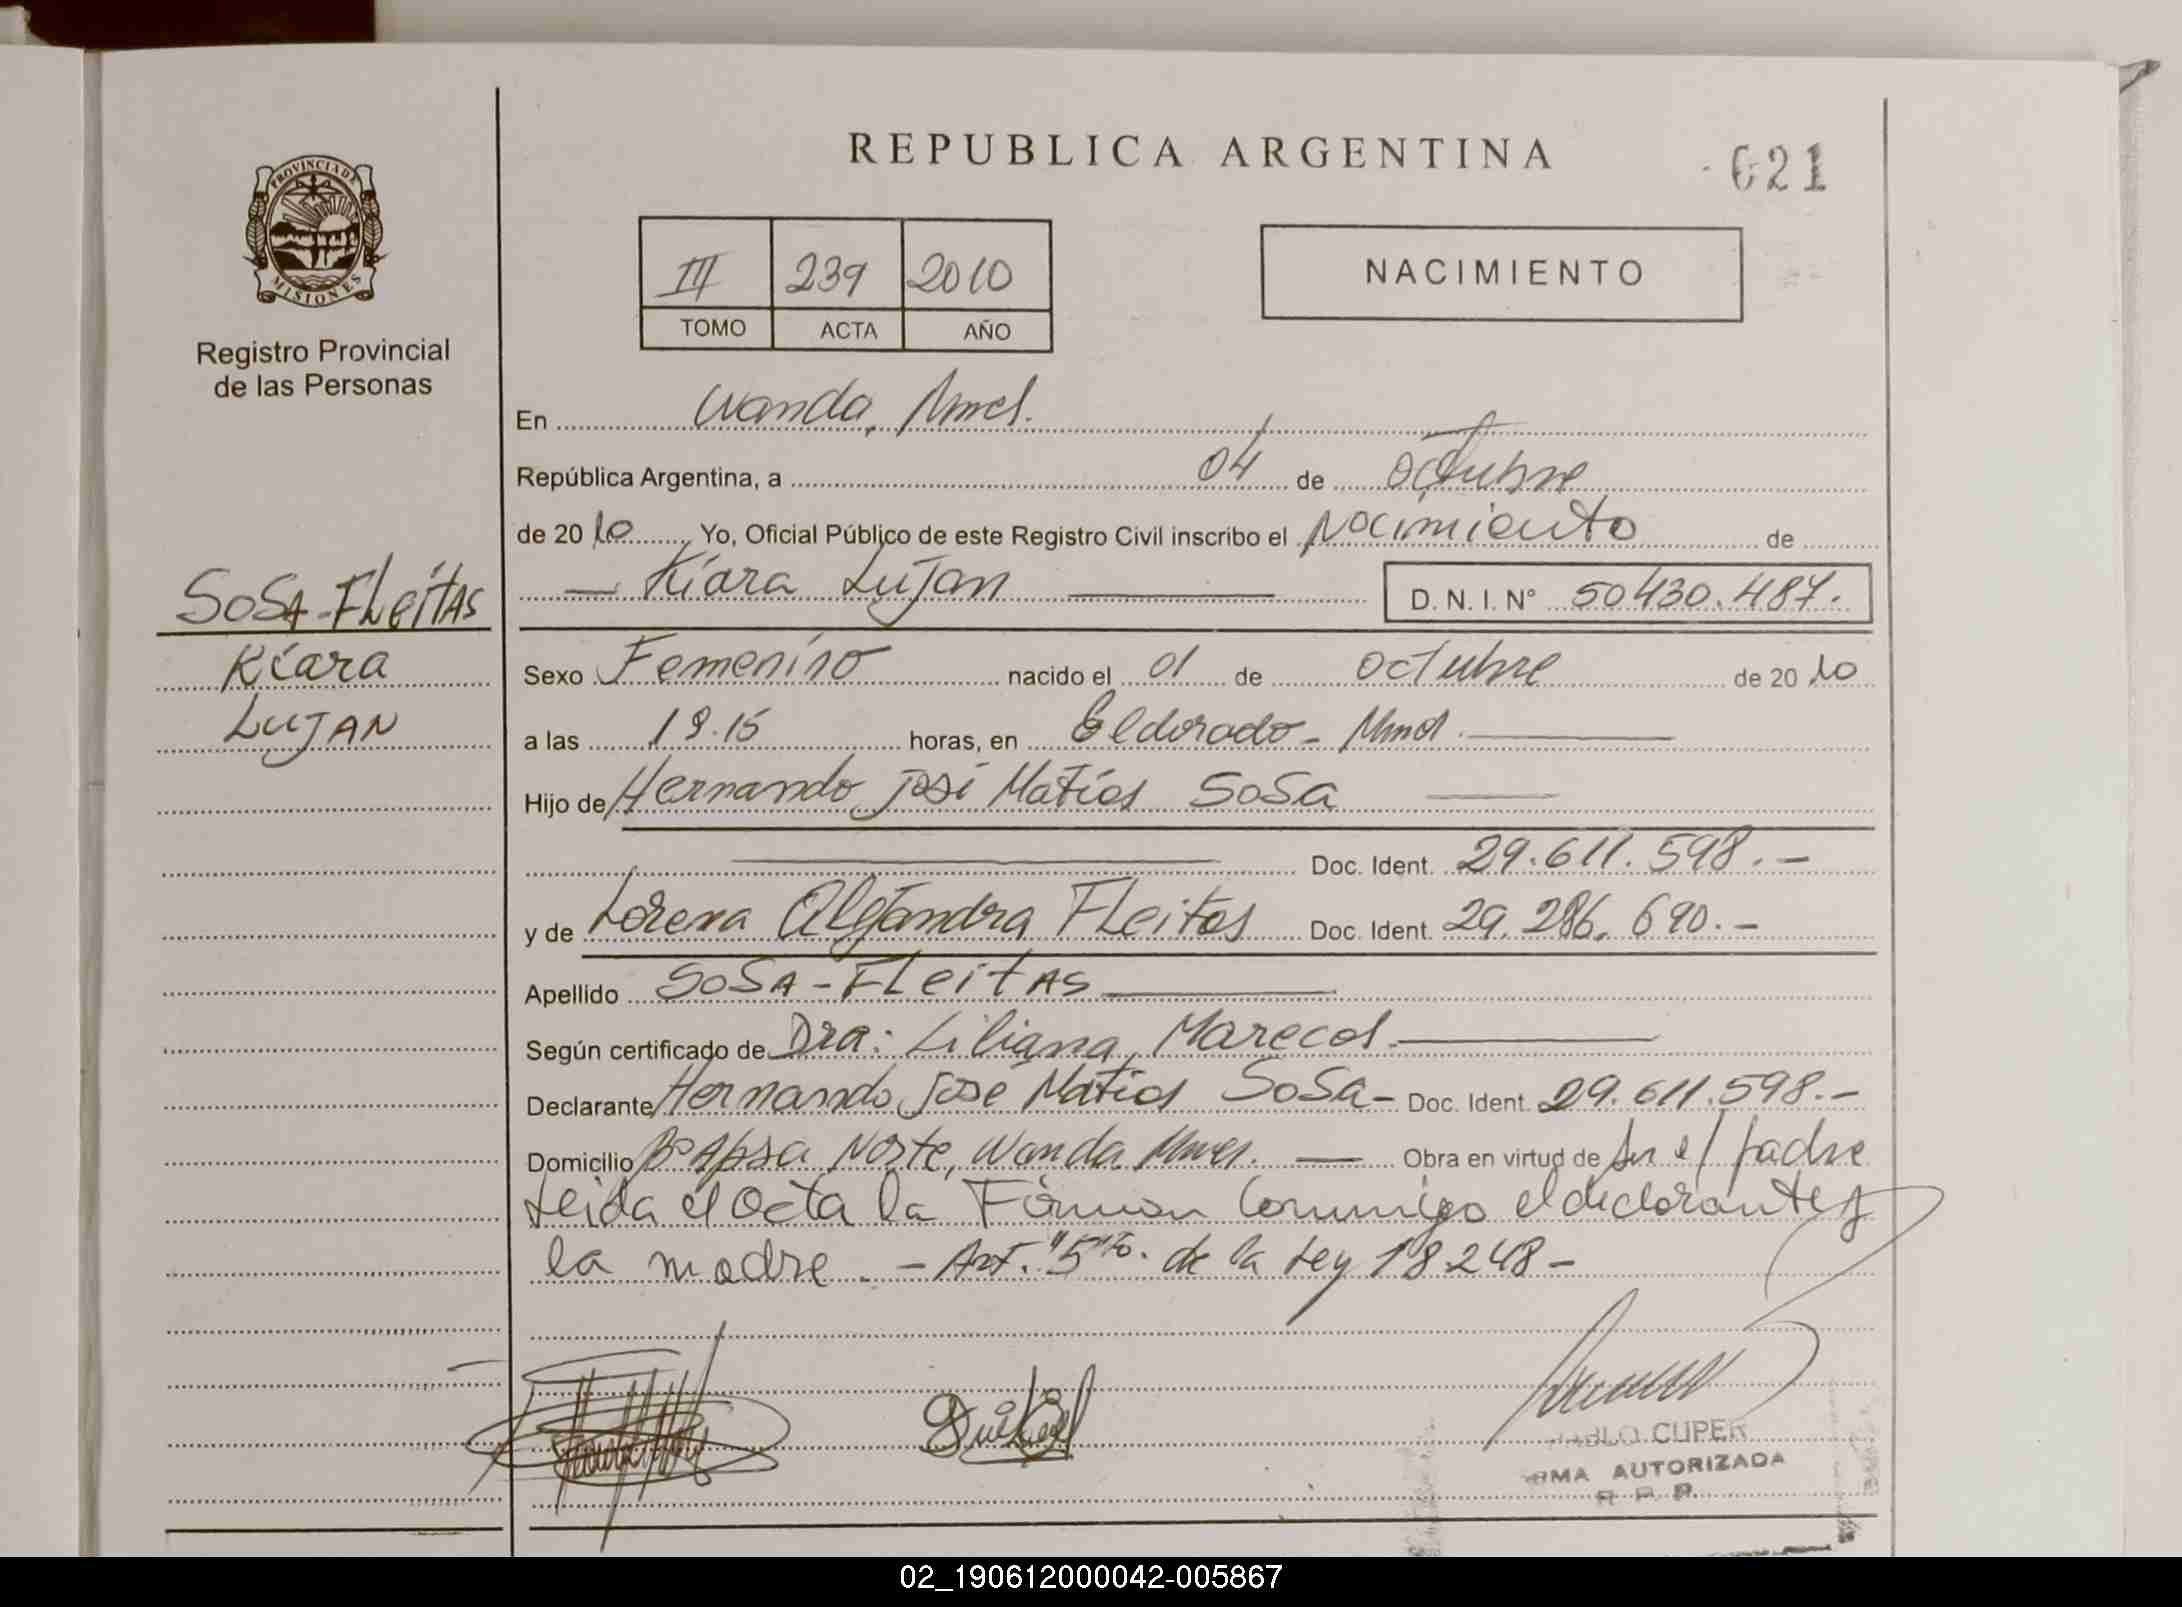 REPUBLICA ARGENTINA
021
PROVINCIA DE
MISIONES
Registro Provincial
de las Personas
III 239 2010
TOMO ACTA AÑO
NACIMIENTO
En Wanda, Mnes.
República Argentina, a 04 de octubre
de 2010 Yo, Oficial Público de este Registro Civil inscribo el Nacimiento de
Kiara Lujan D. N. I. N° 50430.487.
SOSA-FLeitAS
Kiara
LUJAN
Sexo Femenino nacido el 01 de octubre de 2010
a las horas, en Eldorado - Mnes.
Hijo de Hernando José Matías Sosa
Doc. Ident. 29.611.598.-
y de Lorena Alejandra FLeitas Doc. Ident. 29.286.690.-
Apellido SOSA-FLeitAS
Según certificado de Dra: Liliana Mareco
Declarante Hernando José Matías Sosa- Doc. Ident. 29.611.598.-
Domicilio B° Apsa Norte, Wanda, Mnes. Obra en virtud de ser el padre
Leida el acta la Firman Conmigo el declarante y
la madre. - Art. "5"to. de la Ley 18248-
PABLO CUPER
FIRMA AUTORIZADA
R. P. P.
02_190612000042-005867